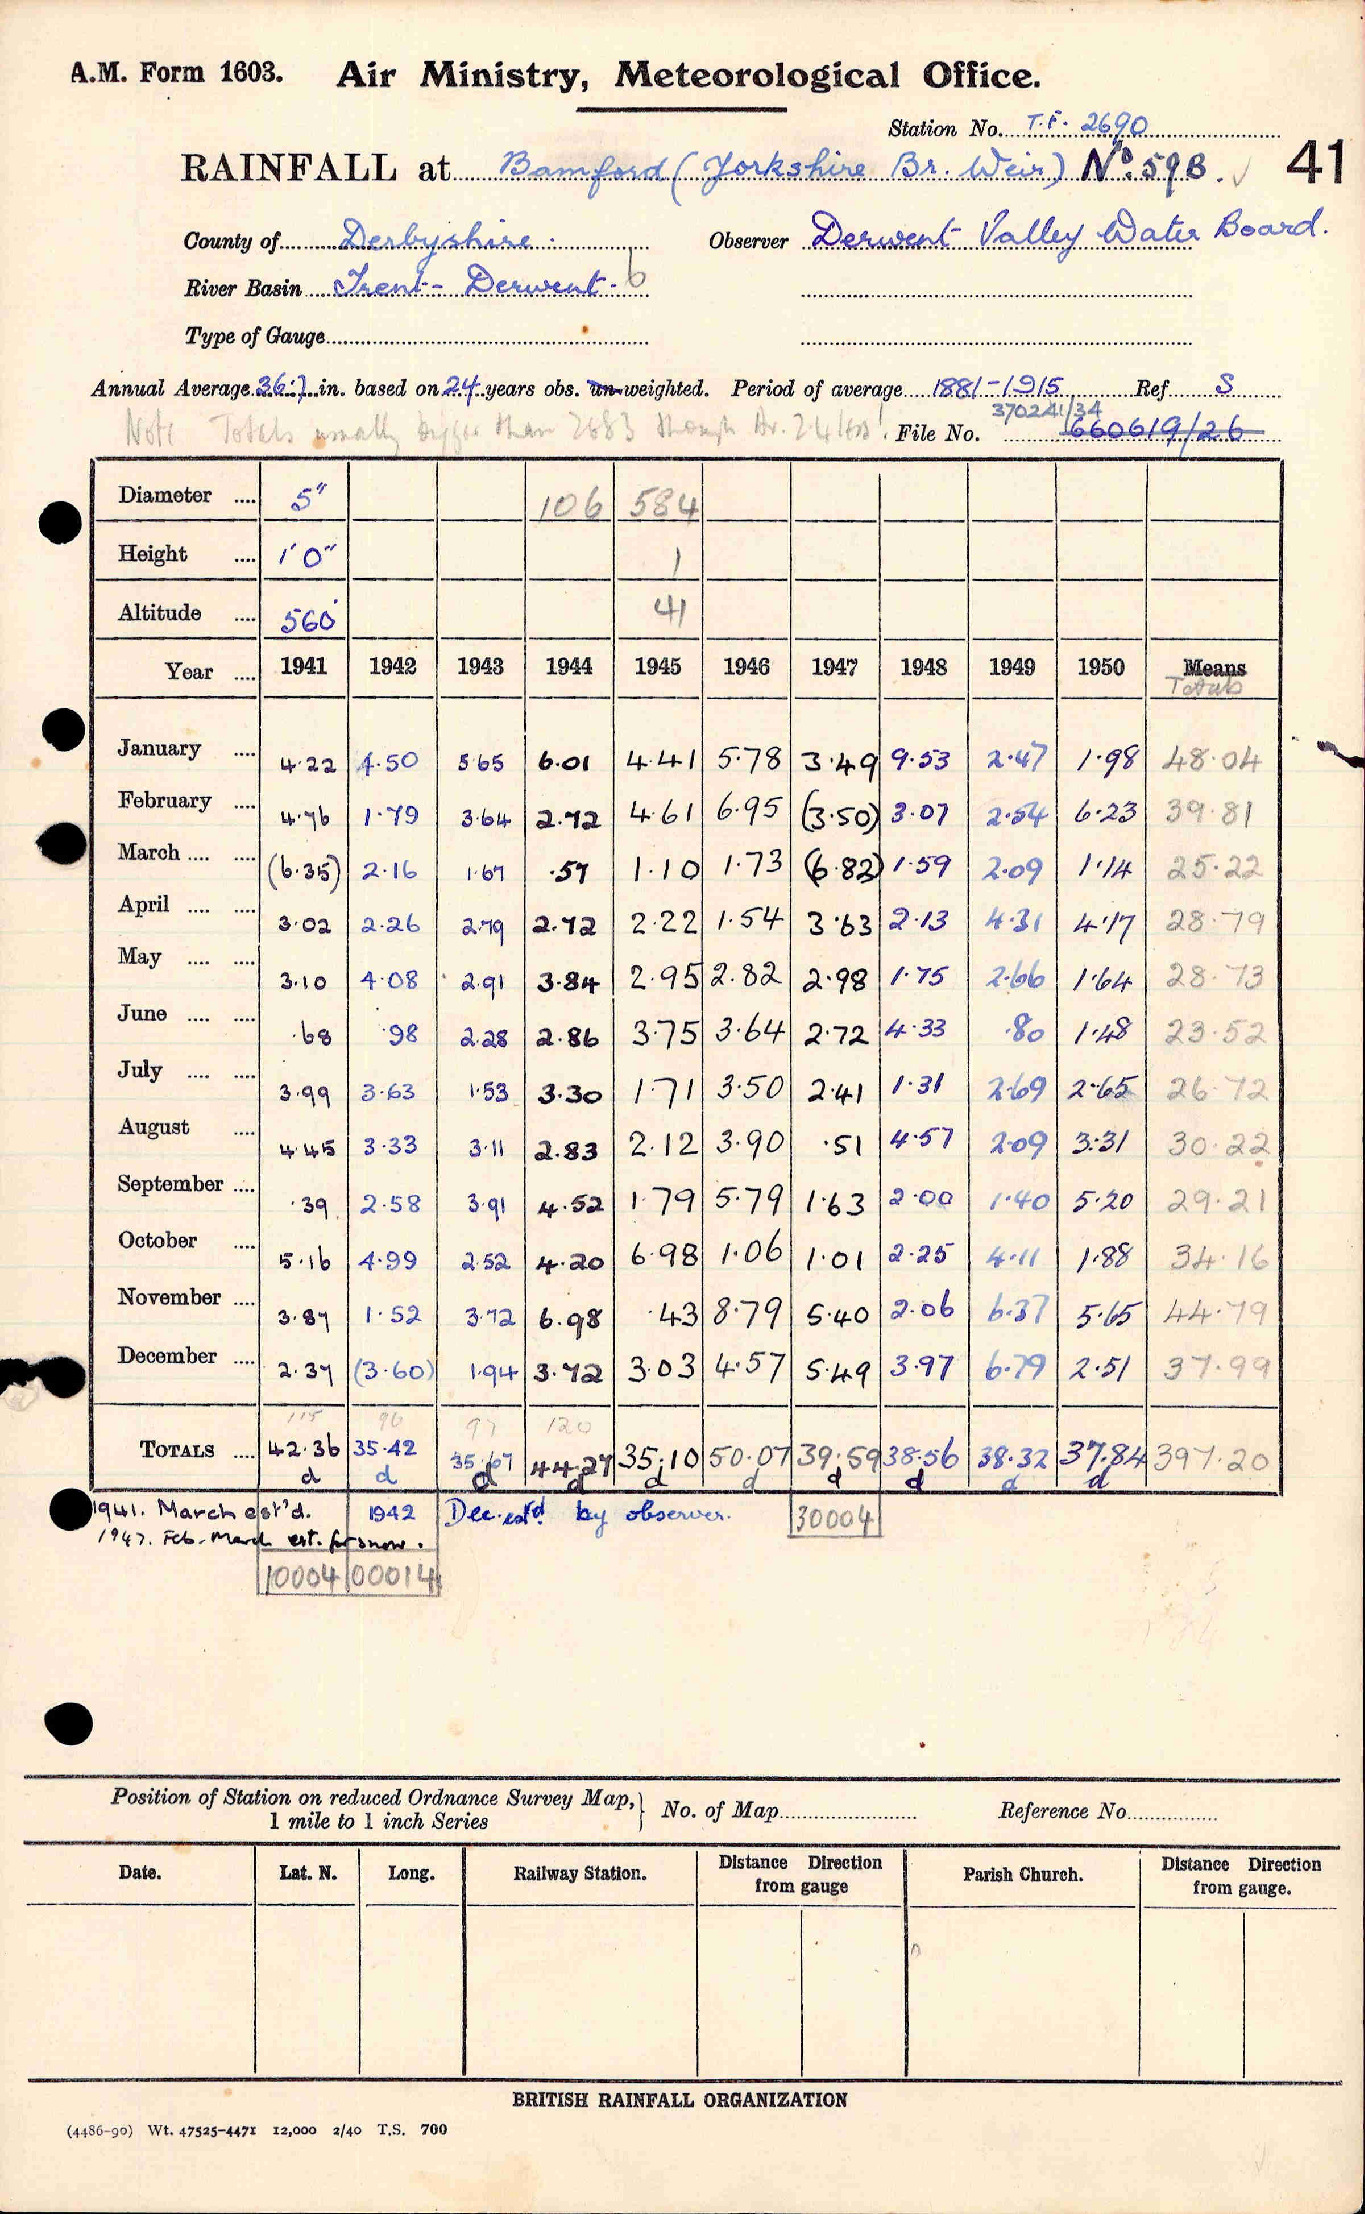 A.M. Form 1603. Air Ministry, Meteorological Office.
Station No. T.F. 2690
RAINFALL at Bamford (Yorkshire Br. Weir) No. 59B. 41
County of Derbyshire. Observer Derwent Valley Water Board.
River Basin Trent - Derwent. 6
Type of Gauge
Annual Average 36.7 in. based on 24 years obs. un-weighted. Period of average 1881-1915 Ref S
370241/34
Note Totals usually bigger than 2683 though Av. 24 less! File No. 660619/26
Diameter .... 5" 106 584
Height .... 1'0" 1
Altitude .... 560' 41
Year .... 1941 1942 1943 1944 1945 1946 1947 1948 1949 1950 Means
Totals
January .... 4.22 4.50 5.65 6.01 4.41 5.78 3.49 9.53 2.47 1.98 48.04
February .... 4.76 1.79 3.64 2.72 4.61 6.95 (3.50) 3.07 2.54 6.23 39.81
March .... .... (6.35) 2.16 1.67 .57 1.10 1.73 (6.82) 1.59 2.09 1.14 25.22
April .... .... 3.02 2.26 2.79 2.72 2.22 1.54 3.63 2.13 4.31 4.17 28.79
May .... .... 3.10 4.08 2.91 3.84 2.95 2.82 2.98 1.75 2.66 1.64 28.73
June .... .... .68 .98 2.28 2.86 3.75 3.64 2.72 4.33 .80 1.48 23.52
July .... .... 3.99 3.63 1.53 3.30 1.71 3.50 2.41 1.31 2.69 2.65 26.72
August .... 4.45 3.33 3.11 2.83 2.12 3.90 .51 4.57 2.09 3.31 30.22
September .... .39 2.58 3.91 4.52 1.79 5.79 1.63 2.00 1.40 5.20 29.21
October .... 5.16 4.99 2.52 4.20 6.98 1.06 1.01 2.25 4.11 1.88 34.16
November .... 3.87 1.52 3.72 6.98 .43 8.79 5.40 2.06 6.37 5.65 44.79
December .... 2.37 (3.60) 1.94 3.72 3.03 4.57 5.49 3.97 6.79 2.51 37.99
115 96 97 120
TOTALS .... 42.36 35.42 35.67 44.27 35.10 50.07 39.59 38.56 38.32 37.84 397.20
d d d d d d d d d d
1941. March est'd. 1942 Dec. est'd. by observer. 30004
1947. Feb-March est. for snow.
10004 00014
Position of Station on reduced Ordnance Survey Map, 1 mile to 1 inch Series } No. of Map Reference No.
Date. Lat. N. Long. Railway Station. Distance Direction from gauge Parish Church. Distance Direction from gauge.
BRITISH RAINFALL ORGANIZATION
(4486-90) Wt. 47525-4471 12,000 2/40 T.S. 700